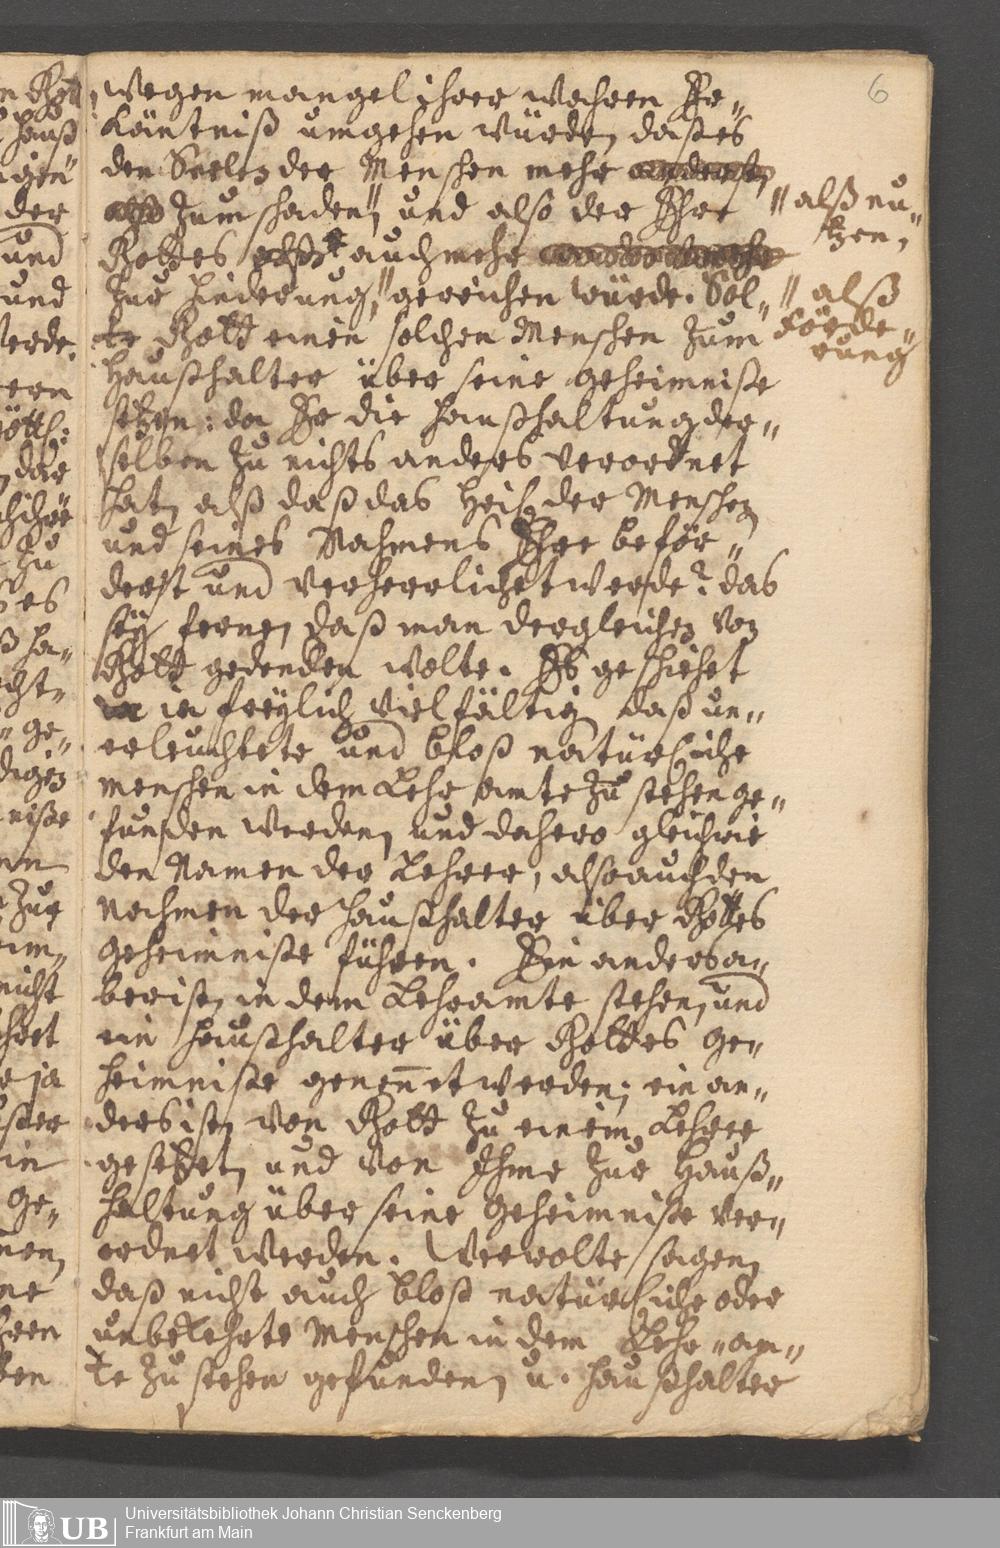 6
wegen mangel ihrer wahren Er„
käntniß umgehen würde, daß es
den Seelen der Menschen mehr
zum schaden„ und also der Ehre
Gottes auch mehr
zur hinderung„ gereichen würde. Sol„
te Gott einen solchen Menschen zum
Haußhalter über seine geheimniße
setzen: da Er die haußhaltung der„
selben zu nichts anders verordnet
hat, alß daß das Heil der Menschen
und seines Nahmens Ehre beför„
dert und verherrlichet werde? das
sey ferne, daß man dergleichen von
Gott gedencken wolte. Es geschiehet
ja freylich vielfältig, daß un„
erleuchtete und bloß natürliche
menschen in dem Lehr amte zu stehen ge„
funden werden, und dahero gleichwie
den Namen der Lehrer, also auch den
Nahmen der haußhalter über Gottes
geheimniße führen. Ein anders a„
ber ist, in dem Lehramte stehen, und
ein haußhalter über Gottes Ge„
heimniße genennet werden; ein an„
ders ist, von Gott zu einem Lehrer
gesetzet, und von Ihme zur Hauß„
haltung über seine Geheimniße ver„
ordnet werden. Wer wolte sagen,
daß nicht auch bloß natürliche oder
unbekehrte Menschen in dem Lehr„am„
te zu stehen gefunden, u. haußhalter
„ alß nu„
tzen,
„ alß
Förde„
rung
Universitätsbibliothek Johann Christian Senckenberg
Frankfurt am Main
UB